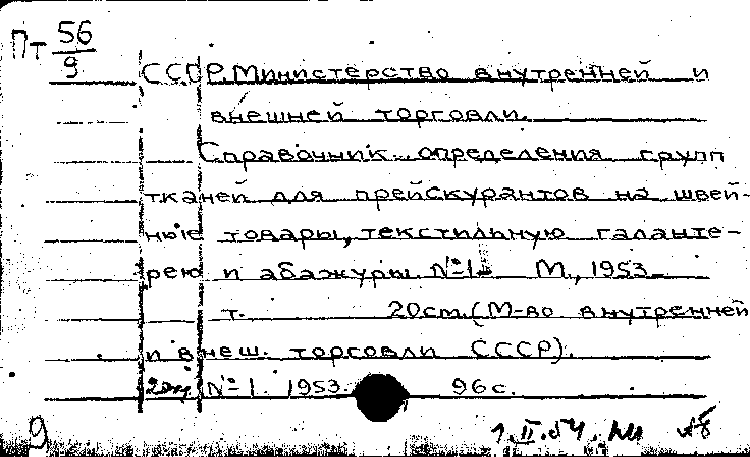 Пт 56/9
СССР. Министерство внутренней и
внешней торговли.
Справочник определения групп
тканей для прейскурантов на швей-
ные товары, текстильную галанте-
рею и абажуры. №1. М., 1953.
т. 20см. (М-во внутренней
и внеш. торговли СССР).
№ 1. 1953. 96с.
9 1.II.54.